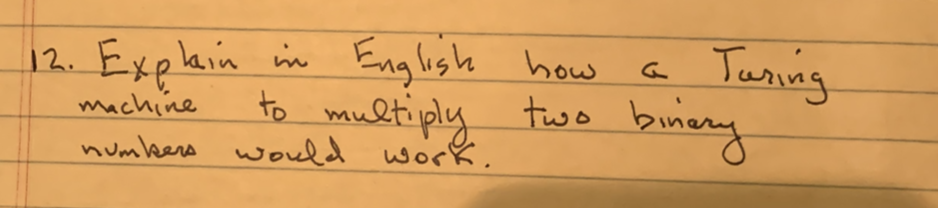 12. Explain in English how a Turing
machine to multiply two binary
numbers would work.